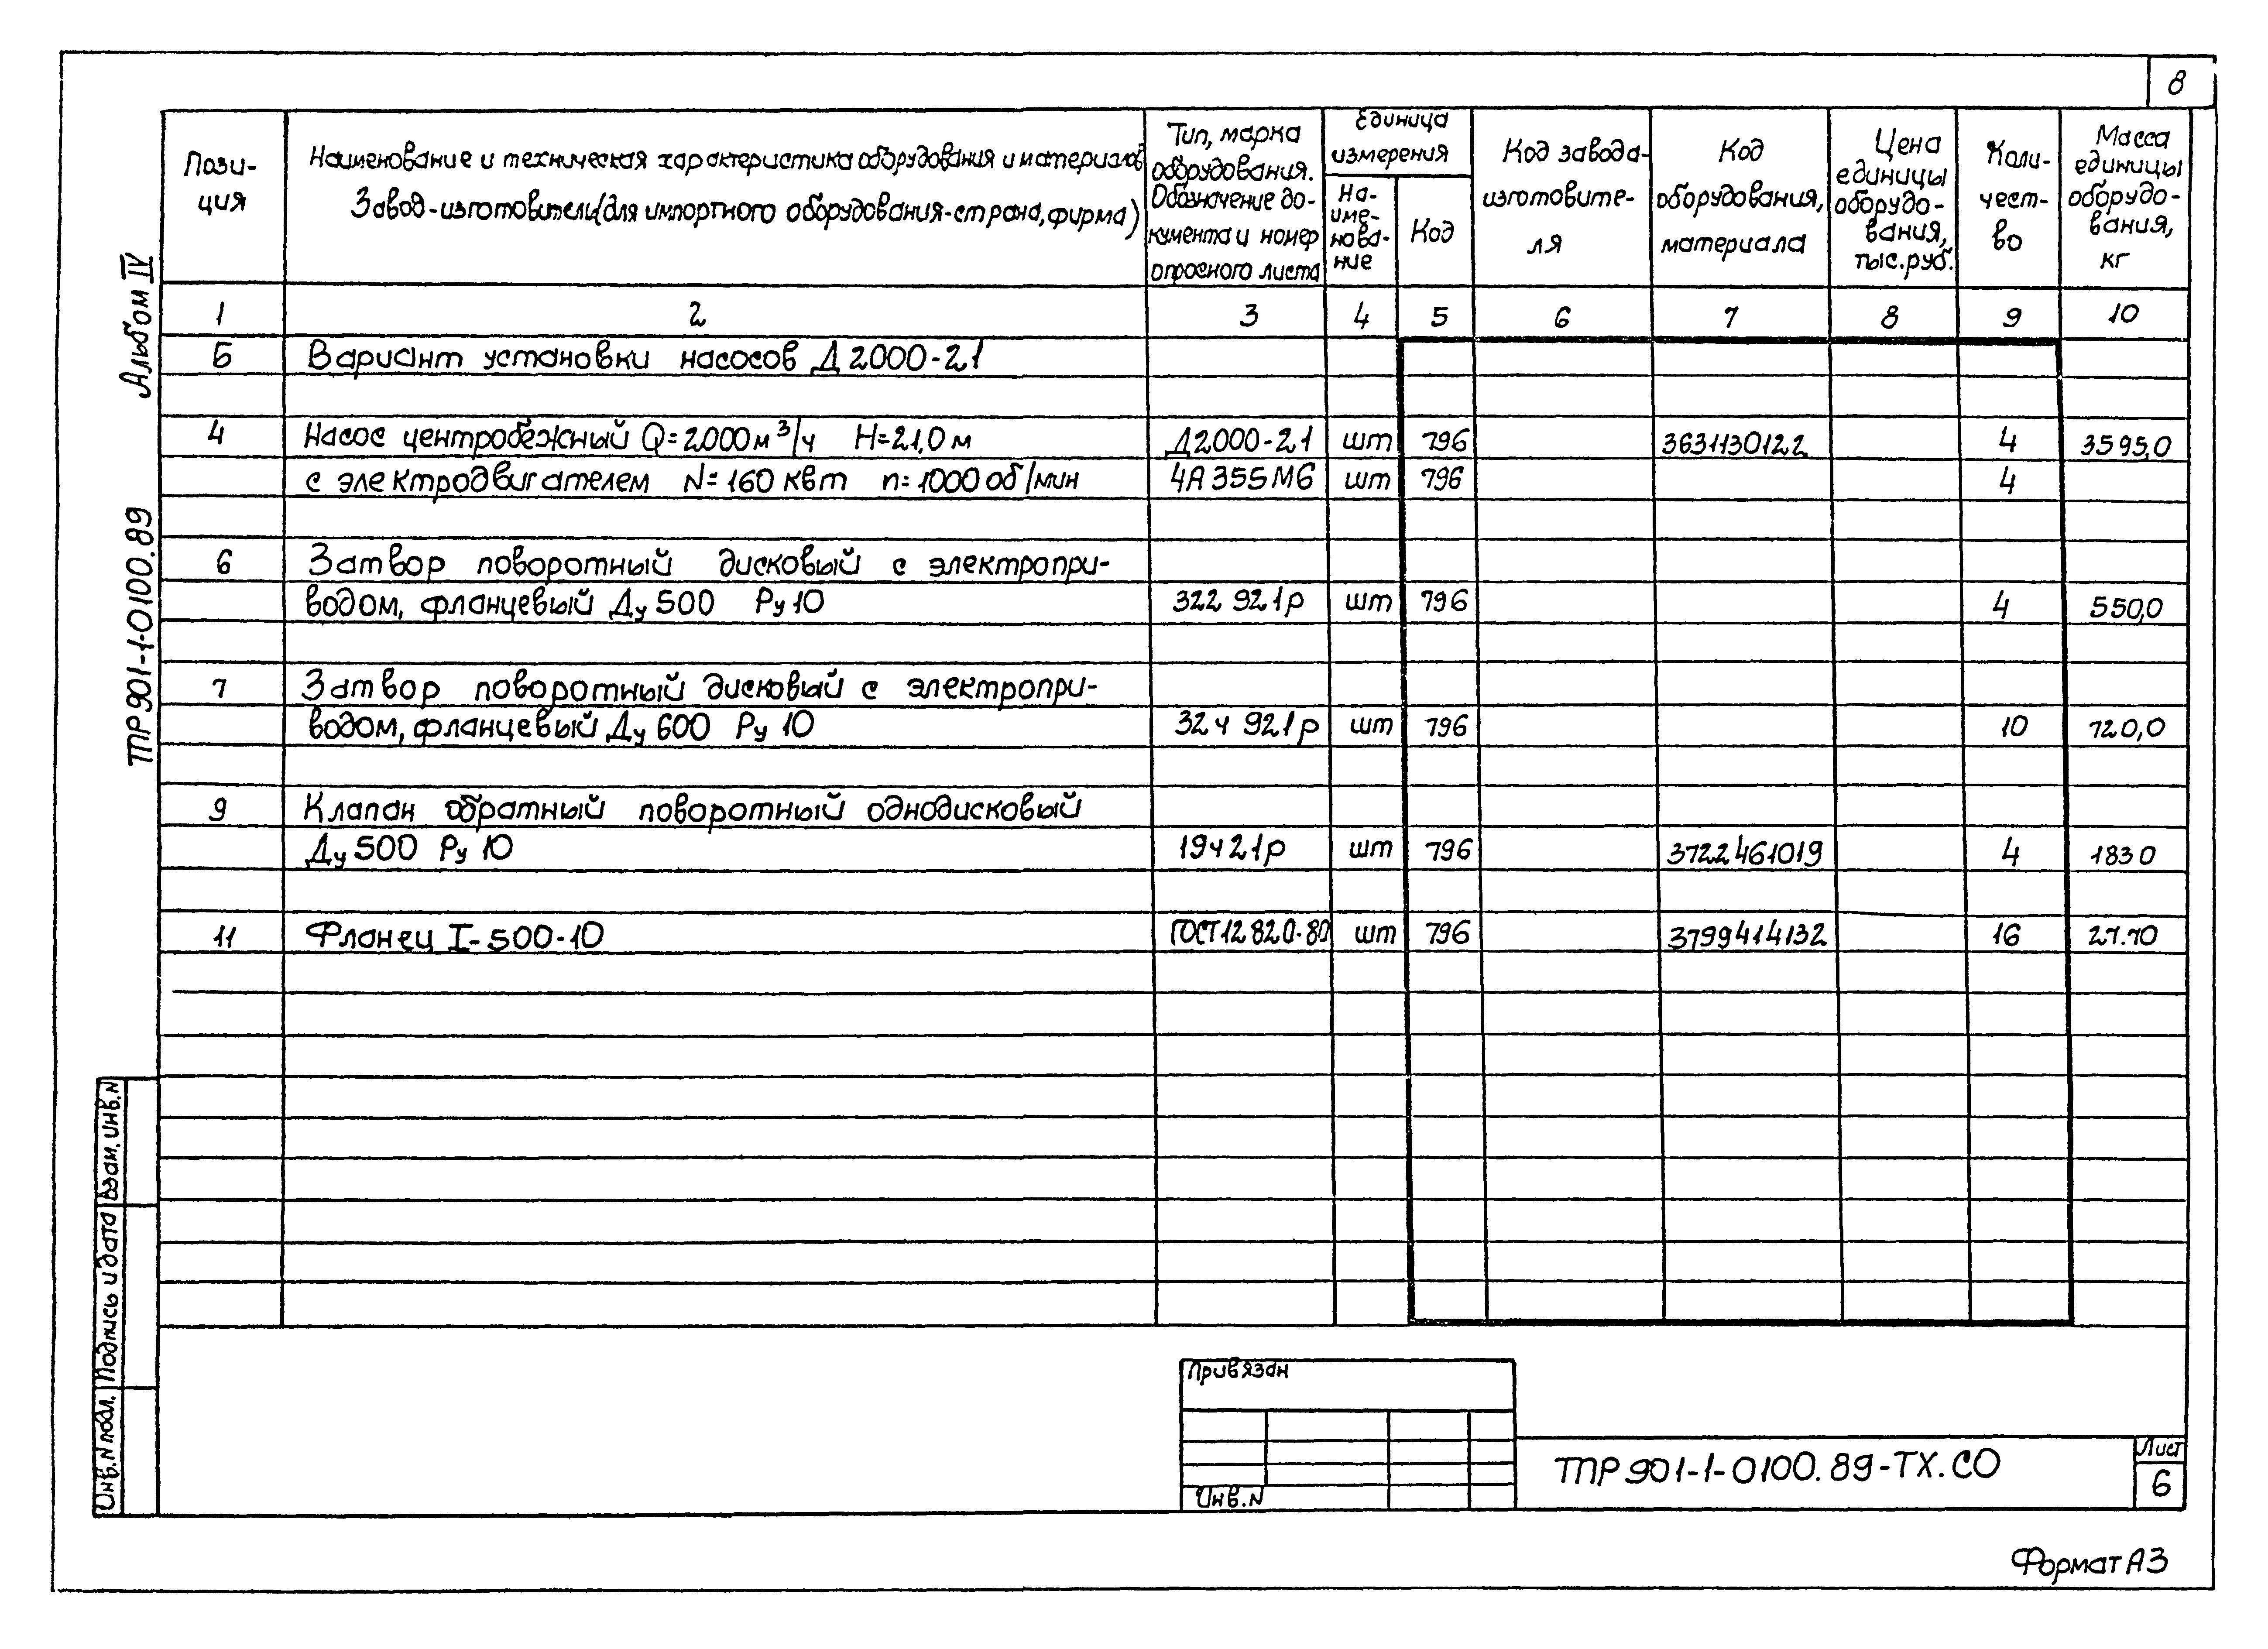 8
Пози-
ция
Наименование и техническая характеристика оборудования и материалов
Завод-изготовитель (для импортного оборудования-страна, фирма)
Тип, марка
оборудования.
Обозначение до-
кумента и номер
опросного листа
Единица
измерения
На-
име-
нова-
ние
Код
Код завода-
изготовите-
ля
Код
оборудования,
материала
Цена
единицы
оборудо-
вания,
тыс.руб.
Коли-
чест-
во
Масса
единицы
оборудо-
вания,
кг
1 2 3 4 5 6 7 8 9 10
Б Вариант установки насосов Д2000-21
4 Насос центробежный Q=2000м³/ч H=21,0м Д2000-21 шт 796 3631130122 4 3595,0
с электродвигателем N=160 квт n=1000 об/мин 4А355М6 шт 796 4
6 Затвор поворотный дисковый с электропри-
водом, фланцевый Ду 500 Ру 10 322 921р шт 796 4 550,0
7 Затвор поворотный дисковый с электропри-
водом, фланцевый Ду 600 Ру 10 32ч 921р шт 796 10 720,0
9 Клапан обратный поворотный однодисковый
Ду 500 Ру 10 19ч21р шт 796 3722461019 4 1830
11 Фланец I-500-10 ГОСТ12820-80 шт 796 3799414132 16 27.70
Альбом IV
ТПР901-1-0100.89
Взам.инв.N
Подпись и дата
Инв.N подл.
Привязан
Инв.N
ТПР901-1-0100.89-ТХ.СО
Лист
6
Формат А3